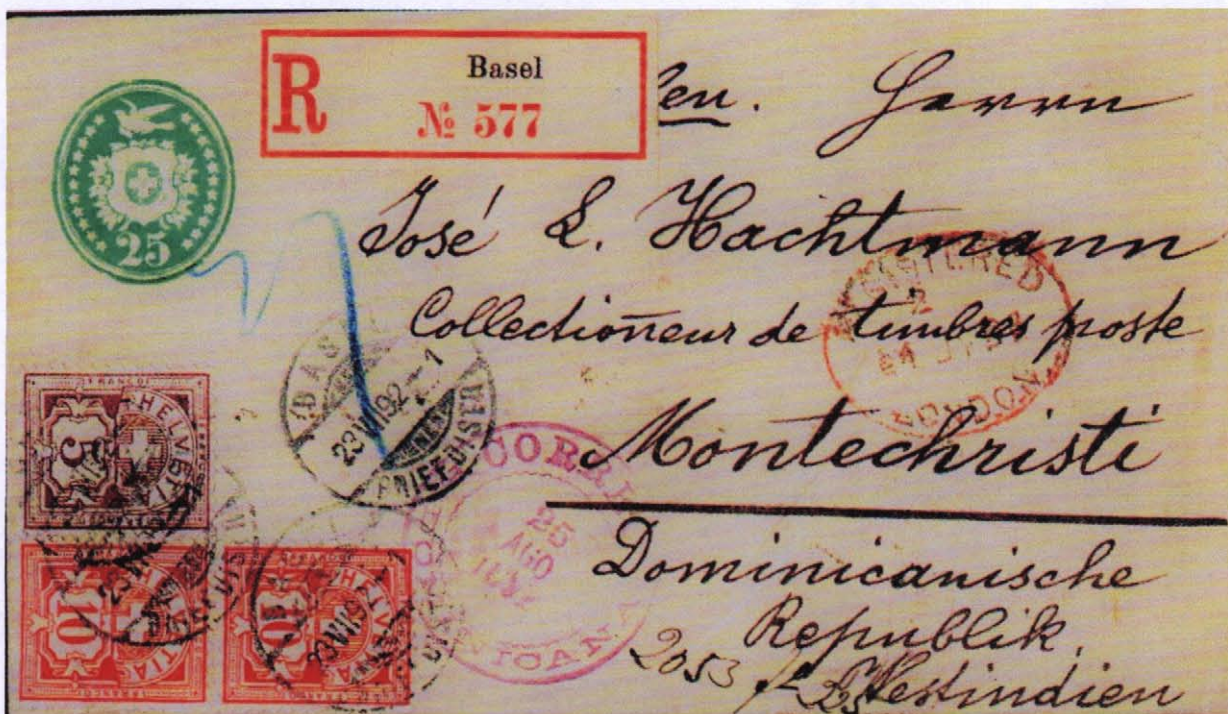 25
R
Basel
№ 577
Herrn
José L. Hachtmann
Collectioneur de timbres poste
Montechristi
Dominicanische
Republik,
Westindien
2053
REGISTERED
LONDON
23 VII 92-1
BRIEF.DIST.
25
AGO
FRANCO
HELVETIA
5
FRANCO
HELVETIA
10
FRANCO
HELVETIA
10